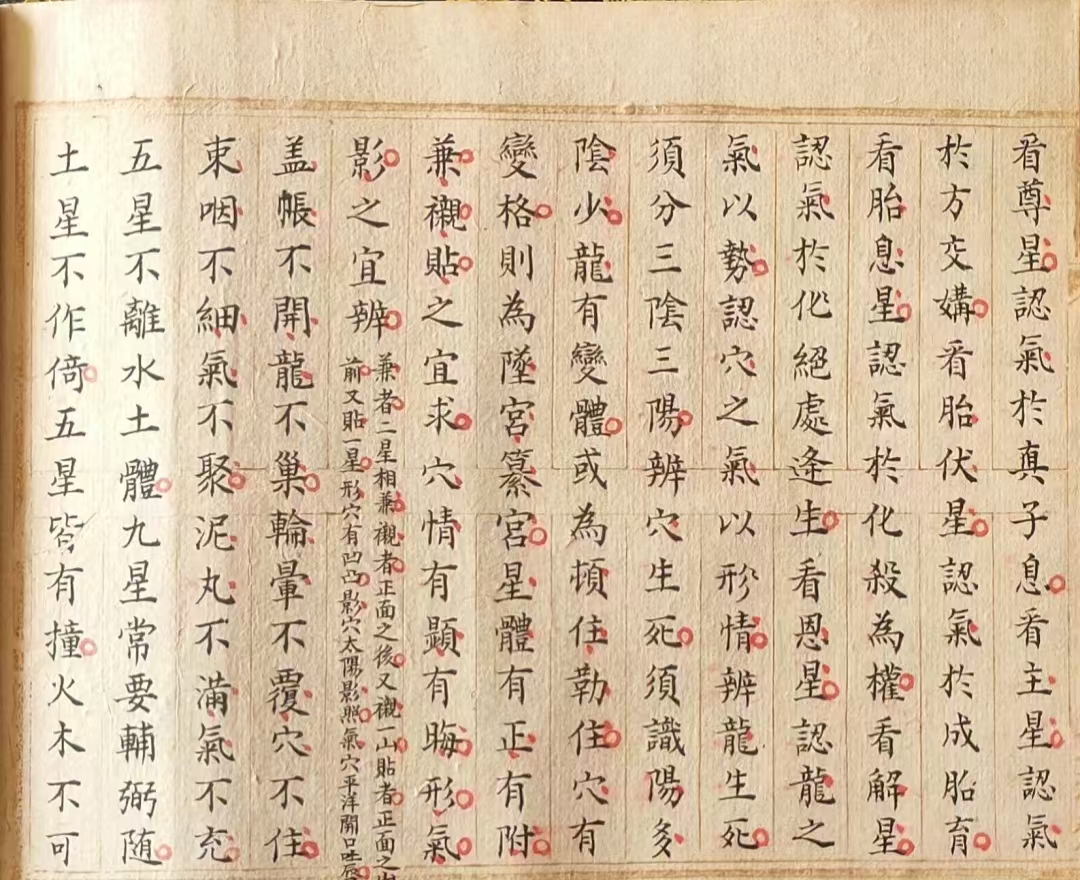 看尊星認氣於真子息看主星認氣
於方交媾看胎伏星認氣於成胎育
看胎息星認氣於化殺為權看解星
認氣於化絕處逢生看恩星認龍之
氣以勢認穴之氣以形情辨龍生死
須分三陰三陽辨穴生死須識陽多
陰少龍有變體或為頓住勒住穴有
變格則為墜宮篡宮星體有正有附
兼襯貼之宜求穴情有顯有晦形氣
影之宜辨
兼者二星相兼襯者正面之後又襯一山貼者正面之
前又貼一星形穴有凹凸影穴太陽影照氣穴平洋開口吐唇
盖帳不開龍不巢輪暈不覆穴不住
束咽不細氣不聚泥丸不滿氣不充
五星不離水土體九星常要輔弼随
土星不作倚五星皆有撞火木不可